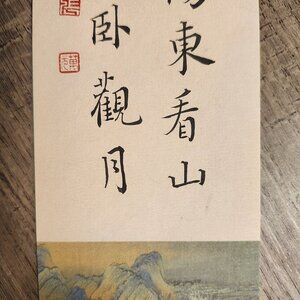 東看山
臥觀月